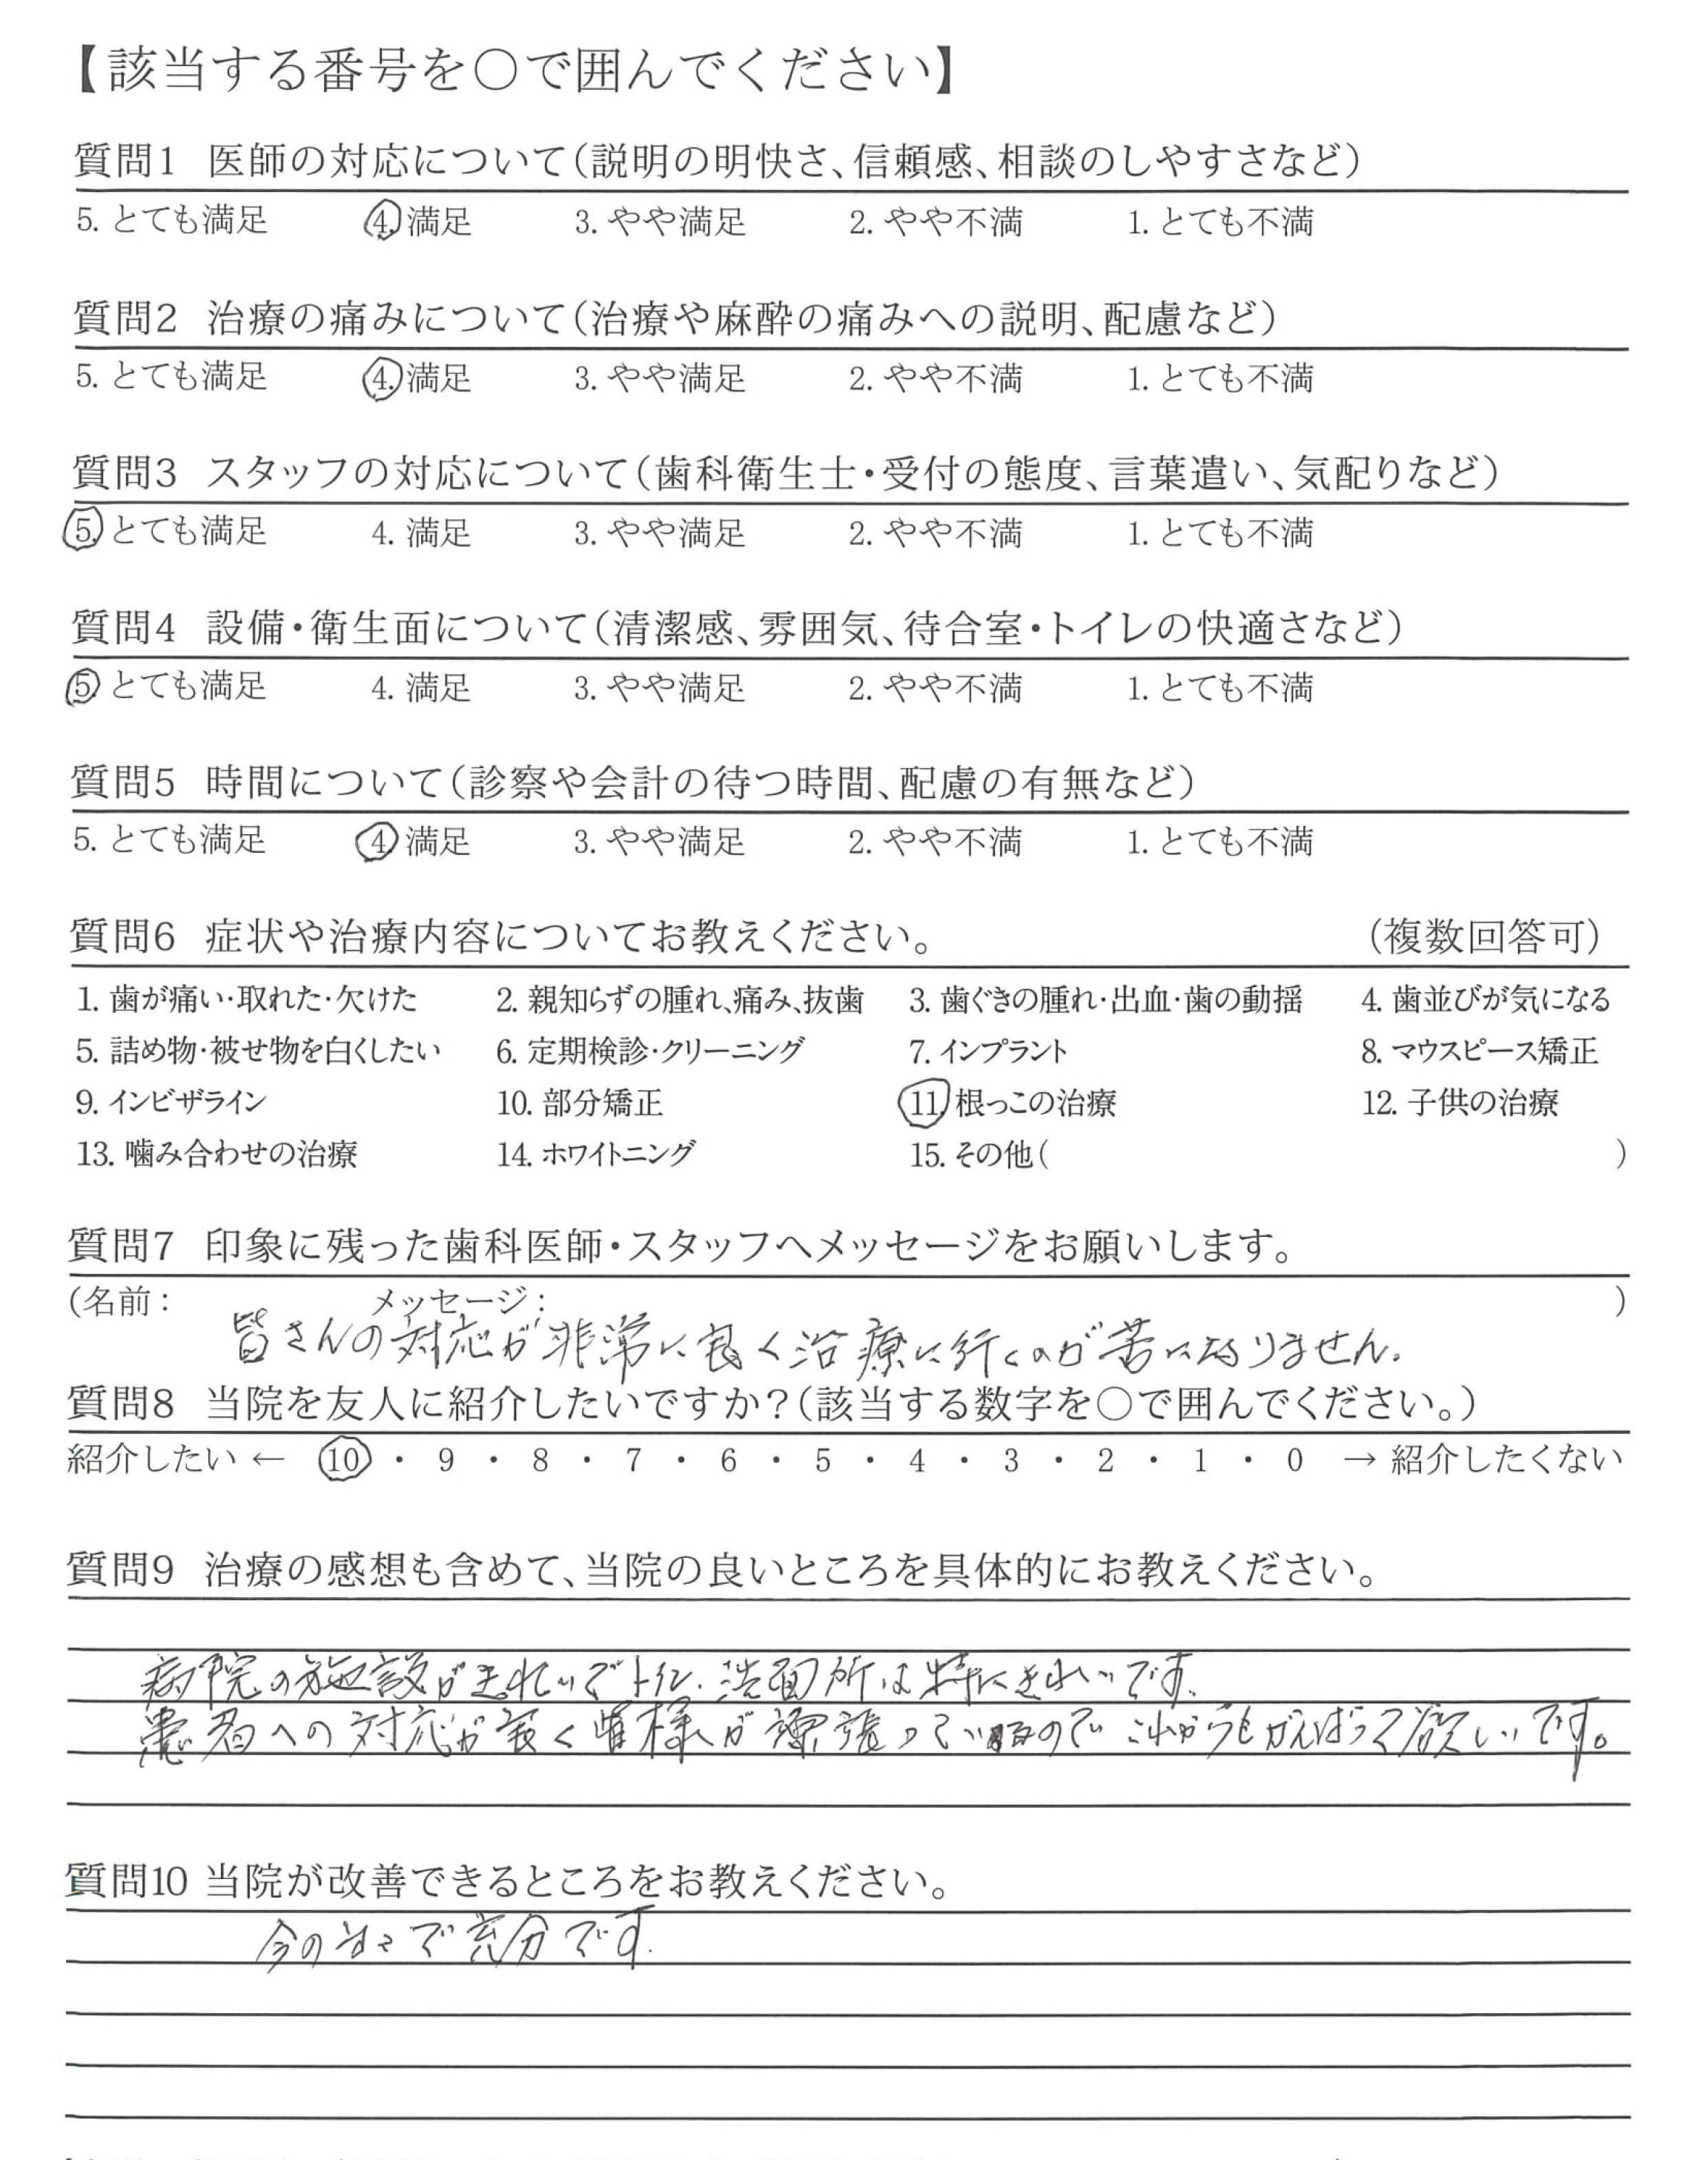 【該当する番号を○で囲んでください】
質問1 医師の対応について(説明の明快さ、信頼感、相談のしやすさなど)
5. とても満足 4. 満足 3. やや満足 2. やや不満 1. とても不満
質問2 治療の痛みについて(治療や麻酔の痛みへの説明、配慮など)
5. とても満足 4. 満足 3. やや満足 2. やや不満 1. とても不満
質問3 スタッフの対応について(歯科衛生士・受付の態度、言葉遣い、気配りなど)
5. とても満足 4. 満足 3. やや満足 2. やや不満 1. とても不満
質問4 設備・衛生面について(清潔感、雰囲気、待合室・トイレの快適さなど)
5. とても満足 4. 満足 3. やや満足 2. やや不満 1. とても不満
質問5 時間について(診察や会計の待つ時間、配慮の有無など)
5. とても満足 4. 満足 3. やや満足 2. やや不満 1. とても不満
質問6 症状や治療内容についてお教えください。 (複数回答可)
1. 歯が痛い・取れた・欠けた 2. 親知らずの腫れ、痛み、抜歯 3. 歯ぐきの腫れ・出血・歯の動揺 4. 歯並びが気になる
5. 詰め物・被せ物を白くしたい 6. 定期検診・クリーニング 7. インプラント 8. マウスピース矯正
9. インビザライン 10. 部分矯正 11. 根っこの治療 12. 子供の治療
13. 噛み合わせの治療 14. ホワイトニング 15. その他( )
質問7 印象に残った歯科医師・スタッフへメッセージをお願いします。
(名前: メッセージ: )
皆さんの対応が非常に良く治療に行くのが苦になりません.
質問8 当院を友人に紹介したいですか?(該当する数字を○で囲んでください。)
紹介したい ← 10 ・ 9 ・ 8 ・ 7 ・ 6 ・ 5 ・ 4 ・ 3 ・ 2 ・ 1 ・ 0 → 紹介したくない
質問9 治療の感想も含めて、当院の良いところを具体的にお教えください。
病院の施設がきれいでトイレ.洗面所は特にきれいです.
患者への対応が良く皆様が頑張っているので これからもがんばって欲しいです。
質問10 当院が改善できるところをお教えください。
今のままで充分です.